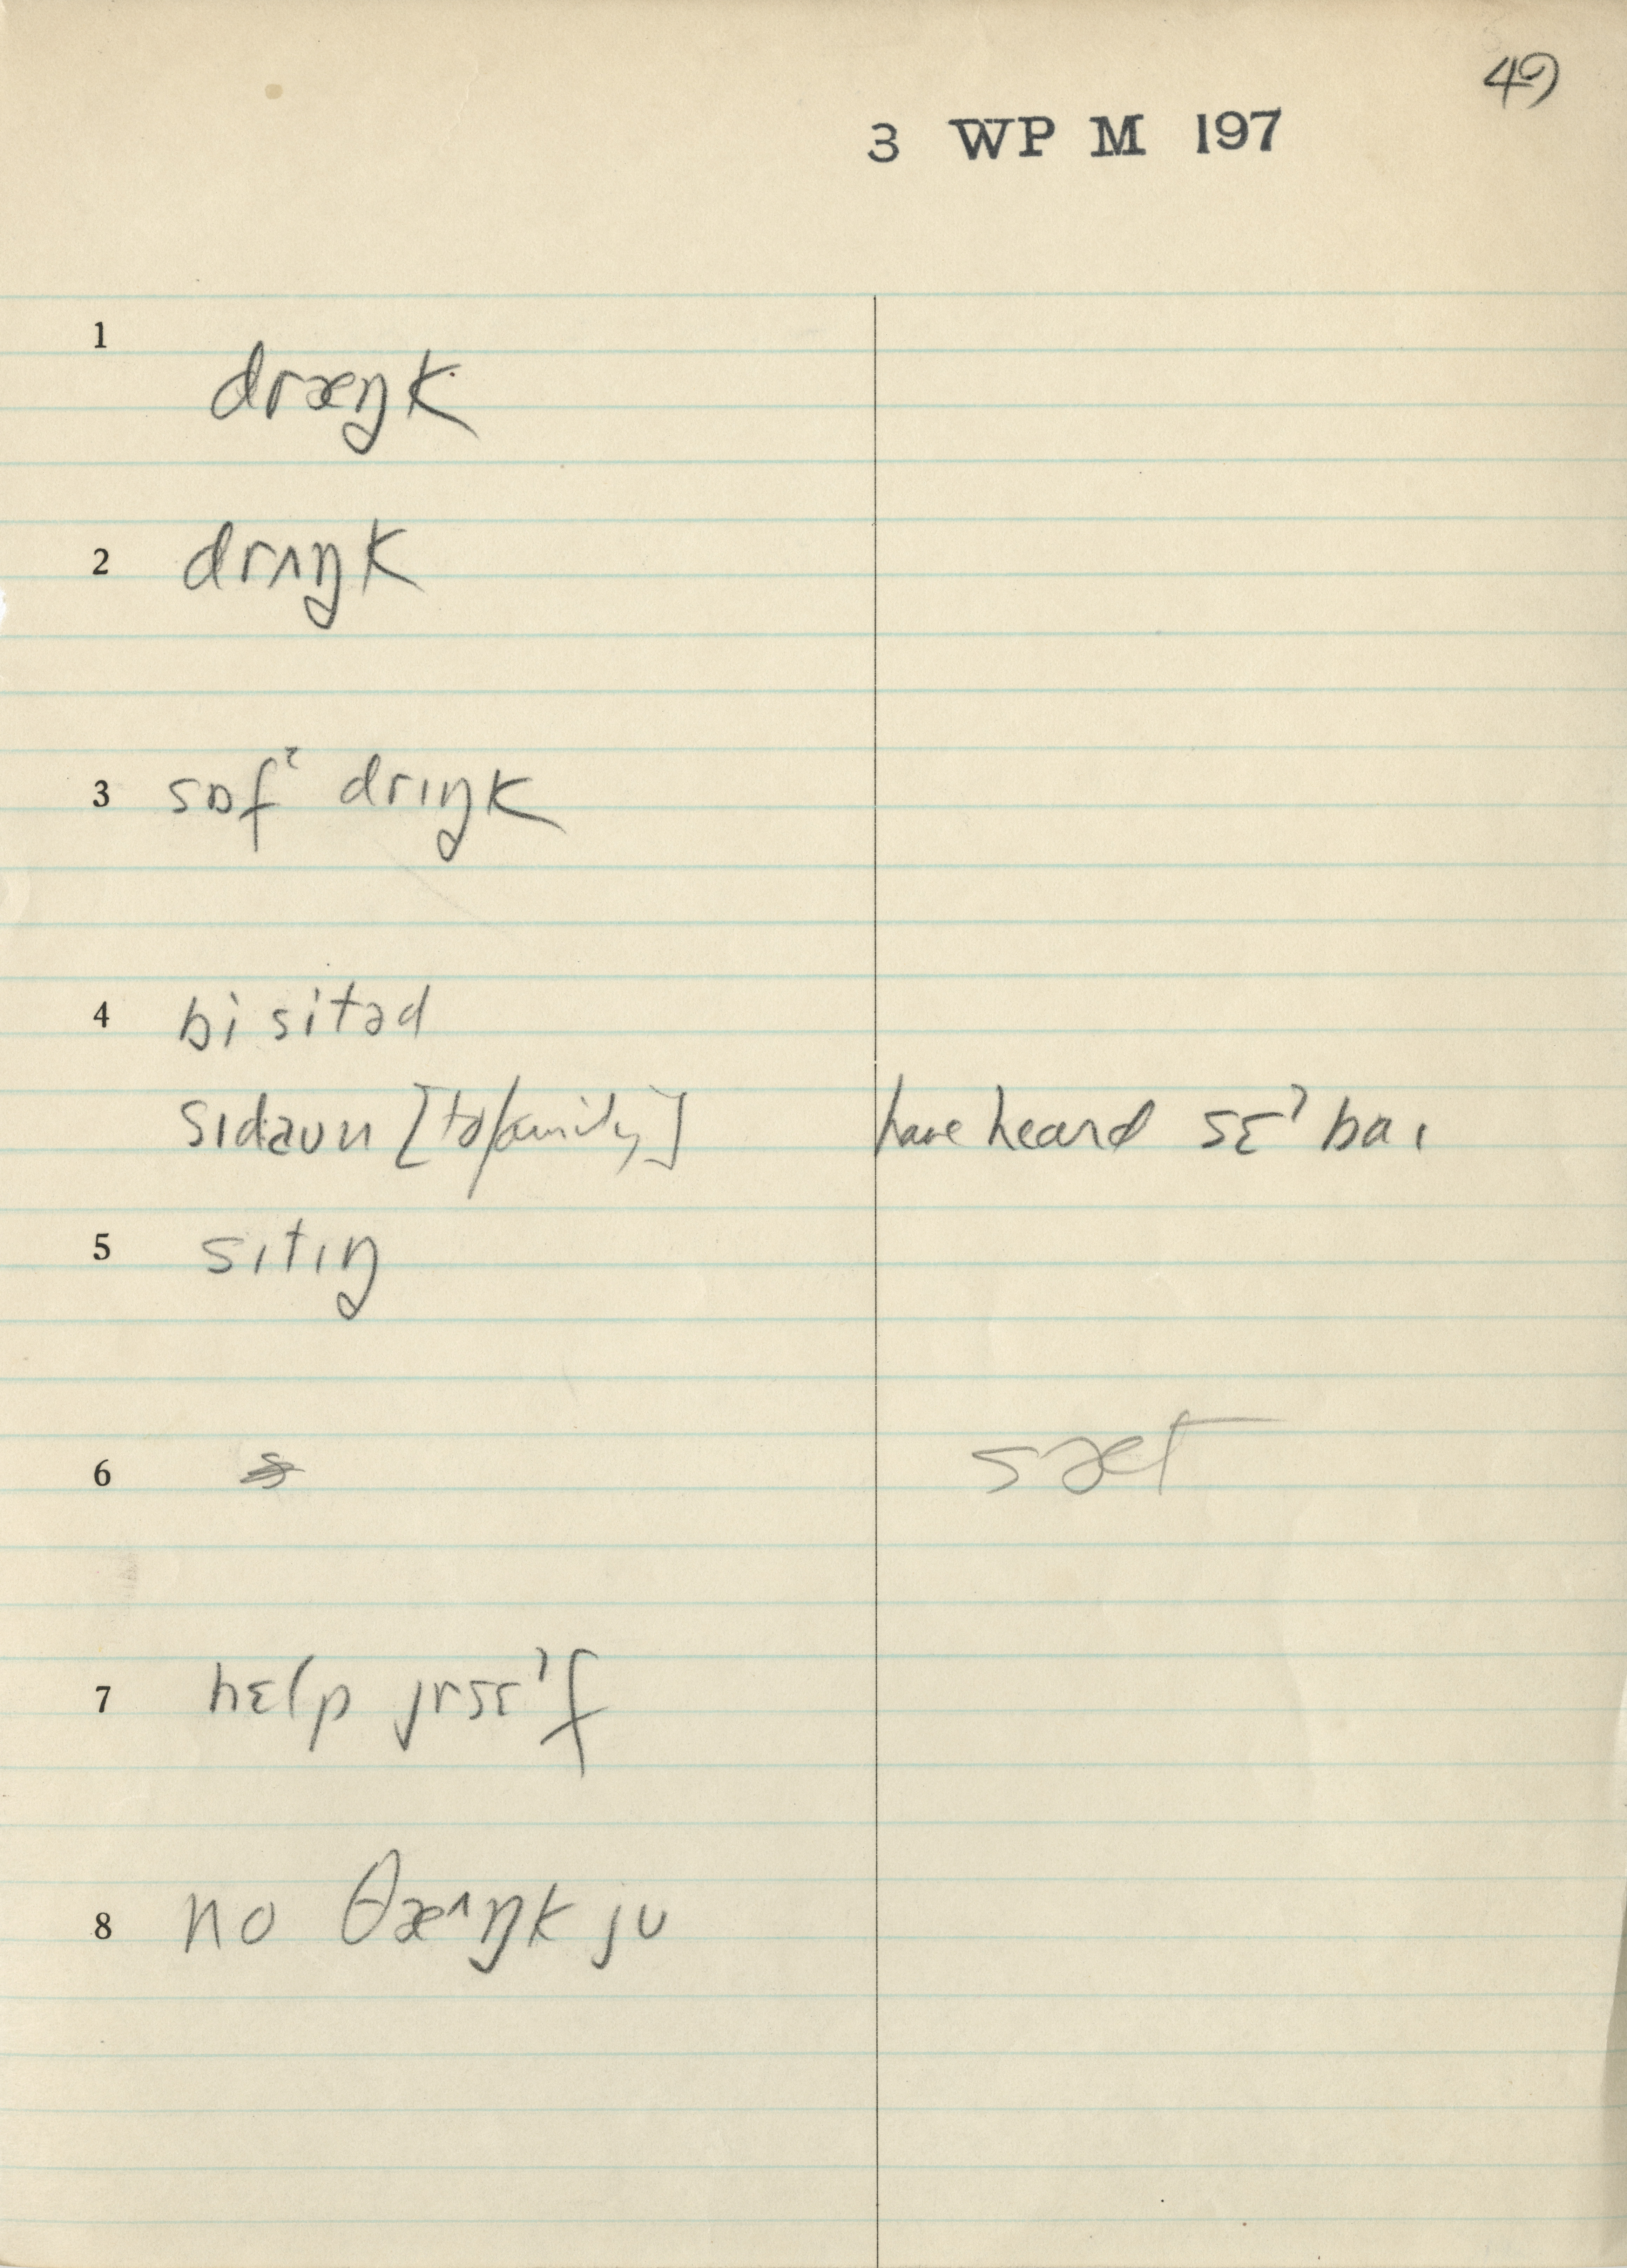 49
3 WP M 197
1
dræŋk
2 drʌŋk
3 sɒfˀ drɪŋk
4 bi sitəd
sɪdaʊn [to family] have heard sɛˀ baɪ
5 sɪtɪŋ
6 sæt
7 hɛlp jrsɛˀf
8 no θæ^ŋk jʊ